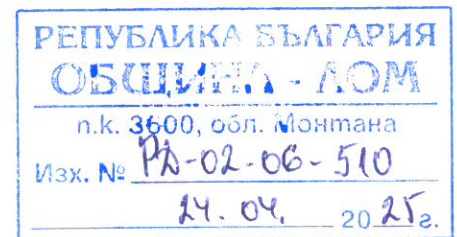 РЕПУБЛИКА БЪЛГАРИЯ
ОБЩИНА - ЛОМ
п.к. 3600, обл. Монтана
Изх. № РД-02-06-510
24. 04. 2025 г.